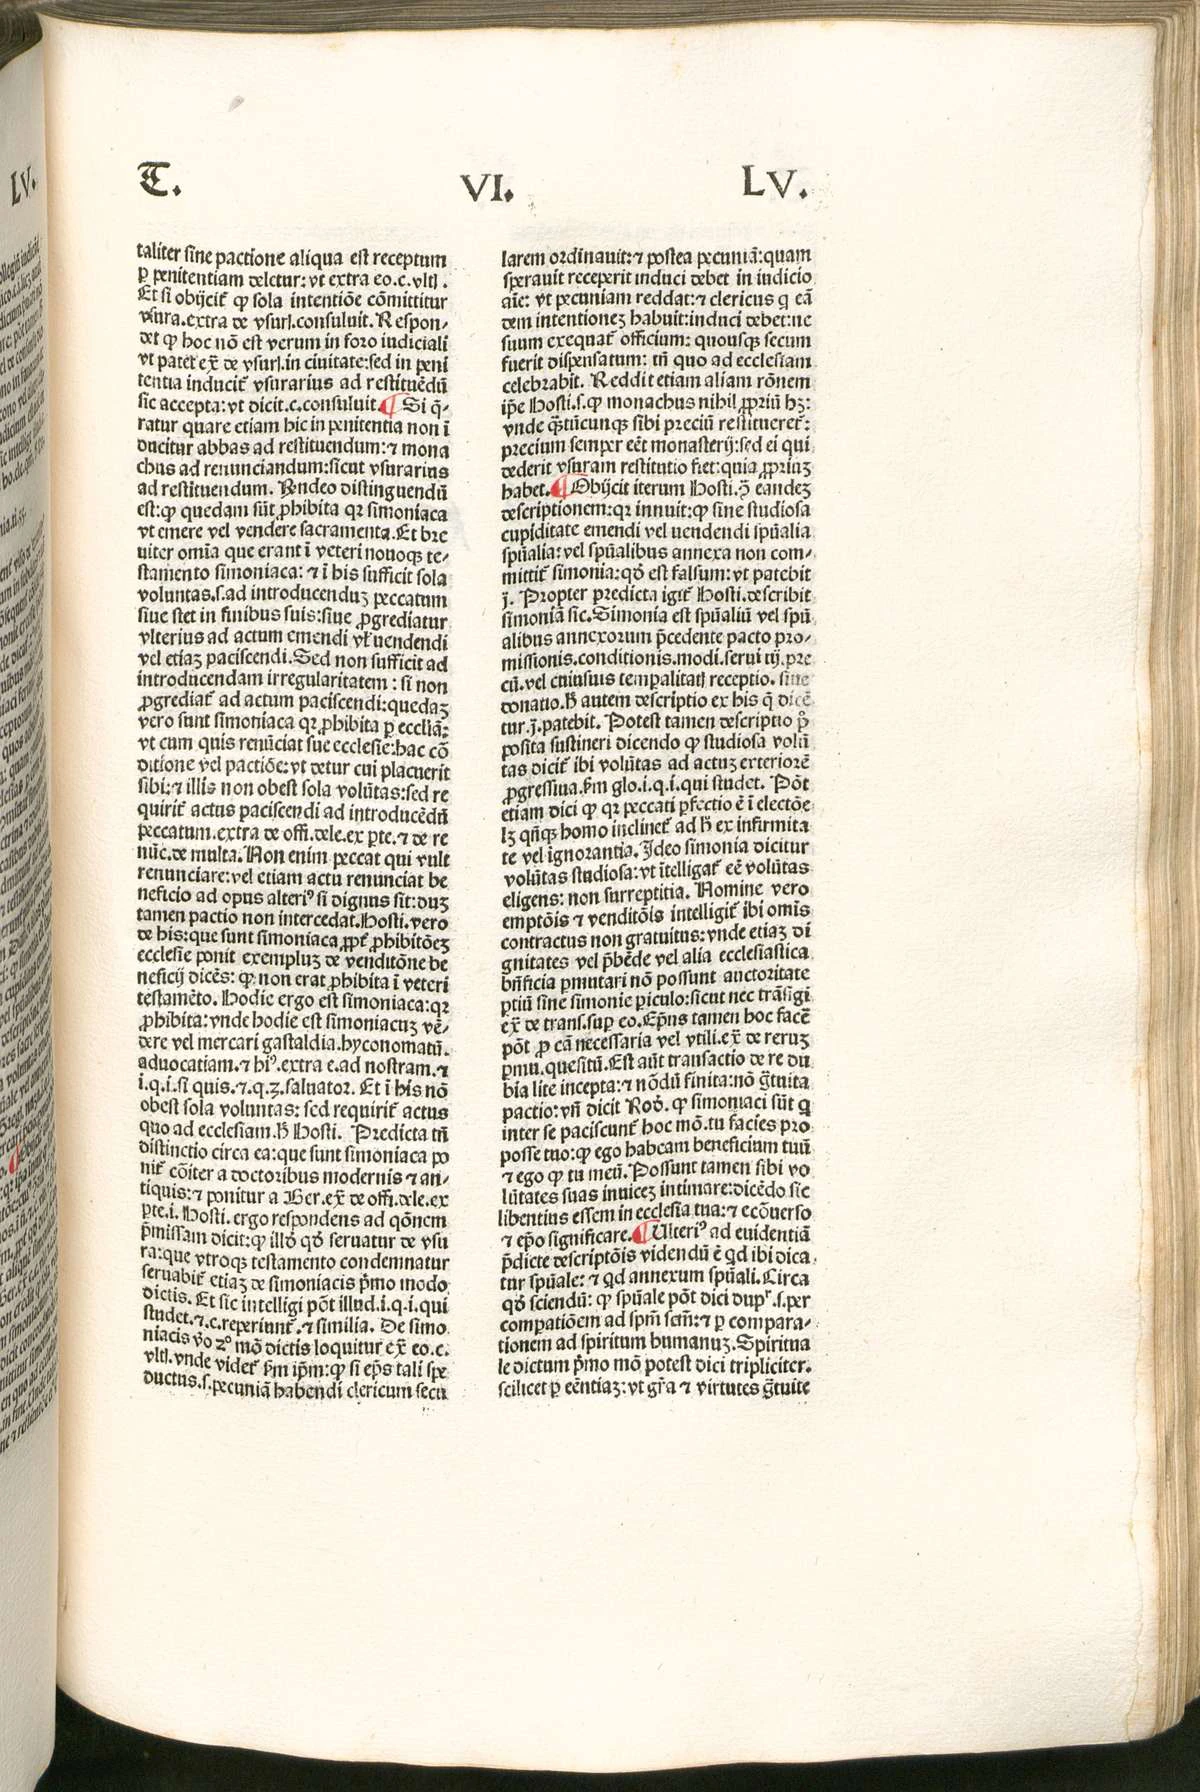 T. VI. LV.
taliter sine pactione aliqua est receptum
ꝑ penitentiam deletur: vt extra eo.c.vltĩ.
Et si obijcit̃ ꝙ sola intentiõe cõmittitur
vsura.extra de vsurĩ.consuluit. Respon⸗
det ꝙ hoc nõ est verum in foro iudiciali
vt patet ex̃ de vsurĩ.in ciuitate:sed in peni
tentia inducit̃ vsurarius ad restituẽdũ
sic accepta: vt dicit.c.consuluit. ¶ Si q̃⸗
ratur quare etiam hic in penitentia non ĩ
ducitur abbas ad restituendum: ⁊ mona
chus ad renunciandum: sicut vsurarius
ad restituendum. Rñdeo distinguendũ
est: ꝙ quedam sũt ꝓhibita qꝛ simoniaca
vt emere vel vendere sacramenta. Et bre
uiter omĩa que erant ĩ veteri nouoqꝫ te⸗
stamento simoniaca: ⁊ ĩ his sufficit sola
voluntas.s.ad introducenduꝫ peccatum
siue stet in finibus suis: siue ꝓgrediatur
vlterius ad actum emendi vł uendendi
vel etiaꝫ paciscendi. Sed non sufficit ad
introducendam irregularitatem: si non
ꝓgrediat̃ ad actum paciscendi: quedaꝫ
vero sunt simoniaca qꝛ ꝓhibita ꝑ eccl̃iã:
vt cum quis renũciat sue ecclesie: hac cõ
ditione vel pactiõe: vt detur cui placuerit
sibi: ⁊ illis non obest sola volũtas: sed re
quirit̃ actus paciscendi ad introducẽdũ
peccatum. extra de offi.dele.ex ꝑte. ⁊ de re
nũc.de multa. Non enim peccat qui vult
renunciare: vel etiam actu renunciat be
neficio ad opus alteriꝰ si dignus sit: duꝫ
tamen pactio non intercedat. Hosti. vero
de his: que sunt simoniaca ꝓpt̃ ꝓhibitõeꝫ
ecclesie ponit exempluꝫ de venditõne be
neficij dicẽs: ꝙ non erat ꝓhibita ĩ veteri
testamẽto. Hodie ergo est simoniaca: qꝛ
ꝓhibita: vnde hodie est simoniacuꝫ vẽ⸗
dere vel mercari gastaldia. hyconomatũ.
aduocatiam. ⁊ hiꝰ. extra e.ad nostram. ⁊
i.q.i.si quis. ⁊.q.3.saluator. Et ĩ his nõ
obest sola voluntas: sed requirit̃ actus
quo ad ecclesiam. h̃ Hosti. Predicta tñ
distinctio circa ea: que sunt simoniaca po
nit̃ cõiter a doctoribus modernis ⁊ an⸗
tiquis: ⁊ ponitur a Ber. ex̃ de offi.dele.ex
ꝑte.i. Hosti. ergo respondens ad qõnem
p̃missam dicit: ꝙ illõ qõ seruatur de vsu
ra: que vtroqꝫ testamento condemnatur
seruabit̃ etiaꝫ de simoniacis p̃mo modo
dictis. Et sic intelligi põt illud.i.q.i.qui
studet. ⁊.c.reperiunt̃. ⁊ similia. De simo
niacis ṽo 2ᵒ mõ dictis loquitur ex̃ eo.c.
vltĩ. vnde videt̃ p̃m ip̃m: ꝙ si ep̃s tali spe
ductus.s.pecuniã habendi clericum secu
larem ordinauit: ⁊ postea pecuniã: quam
sperauit receperit induci debet in iudicio
aĩe: vt pecuniam reddat: ⁊ clericus q̃ eã
dem intentioneꝫ habuit: induci debet: ne
suum exequat̃ officium: quousqꝫ secum
fuerit dispensatum: tñ quo ad ecclesiam
celebrabit. Reddit etiam aliam rõnem
ip̃e Hosti.s.ꝙ monachus nihil ꝓpriũ hꝫ:
vnde q̃tũcunqꝫ sibi preciũ restitueret̃:
precium semper eẽt monasterij: sed ei qui
dederit vsuram restitutio fiet: quia ꝓpriuꝫ
habet. ¶ Obijcit iterum Hosti. ꝯ̃ eandeꝫ
descriptionem: qꝛ innuit: ꝙ sine studiosa
cupiditate emendi vel uendendi spũalia
spũalia: vel spũalibus annexa non com⸗
mittit̃ simonia: qõ est falsum: vt patebit
j̃. Propter predicta igit̃ Hosti. describit
simoniã sic. Simonia est spũaliũ vel spũ
alibus annexorum p̃cedente pacto pro⸗
missionis.conditionis.modi.serui tij.pre
cij̃.vel cuiusuis temꝑalitatĩ receptio. siue
donatio. h̃ autem descriptio ex his q̃ dicẽ
tur.j̃.patebit. Potest tamen descriptio p̃
posita sustineri dicendo ꝙ studiosa volũ
tas dicit̃ ibi volũtas ad actuꝫ exteriorẽ
ꝓgressiua. p̃m glo.i.q.i.qui studet. Põt
etiam dici ꝙ qꝛ peccati ꝑfectio ẽ ĩ electõe
lꝫ qñqꝫ homo inclinet̃ ad h̃ ex infirmita
te vel ignorantia. Ideo simonia dicitur
volũtas studiosa: vt ĩtelligat̃ eẽ volũtas
eligens: non surreptitia. Nomine vero
emptõis ⁊ venditõis intelligit̃ ibi omĩs
contractus non gratuitus: vnde etiaꝫ di
gnitates vel p̃bẽde vel alia ecclesiastica
bñficia ꝑmutari nõ possunt auctoritate
ꝑtiũ sine simonie ꝑiculo: sicut nec trãsigi
ex̃ de trans.suꝑ eo. Ep̃us tamen hoc facẽ
põt ꝓ cã necessaria vel vtili. ex̃ de reruꝫ
ꝑmu.quesitũ. Est aũt transactio de re du
bia lite incepta: ⁊ nõdũ finita: nõ g̃tuita
pactio: vñ dicit Rod̃. ꝙ simoniaci sũt q̃
inter se paciscunt̃ hoc mõ. tu facies pro
posse tuo: ꝙ ego habeam beneficium tuũ
⁊ ego ꝙ tu meũ. Possunt tamen sibi vo
lũtates suas inuiceꝫ intimare: dicẽdo sic
libentius essem in ecclesia tua: ⁊ ecõuerso
⁊ ep̃o significare. ¶ Ulteriꝰ ad euidentiã
p̃dicte descriptõis videndũ ẽ qd̃ ibi dica
tur spũale: ⁊ qd̃ annexum spũali. Circa
qõ sciendũ: ꝙ spũale põt dici dupr̃.s.per
comꝑatiõem ad spm̃ scm̃: ⁊ ꝑ compara⸗
tionem ad spiritum humanuꝫ. Spiritua
le dictum p̃mo mõ potest dici tripliciter.
scilicet ꝑ eẽntiaꝫ: vt gr̃a ⁊ virtutes g̃tuite